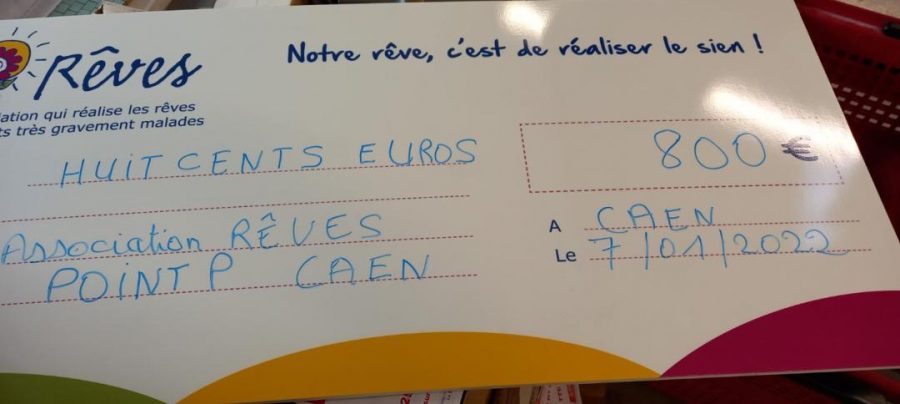 Rêves
Notre rêve, c'est de réaliser le sien !
ation qui réalise les rêves
ts très gravement malades
HUIT CENTS EUROS
800 €
Association RÊVES
A CAEN
POINT P CAEN
Le 7/01/2022